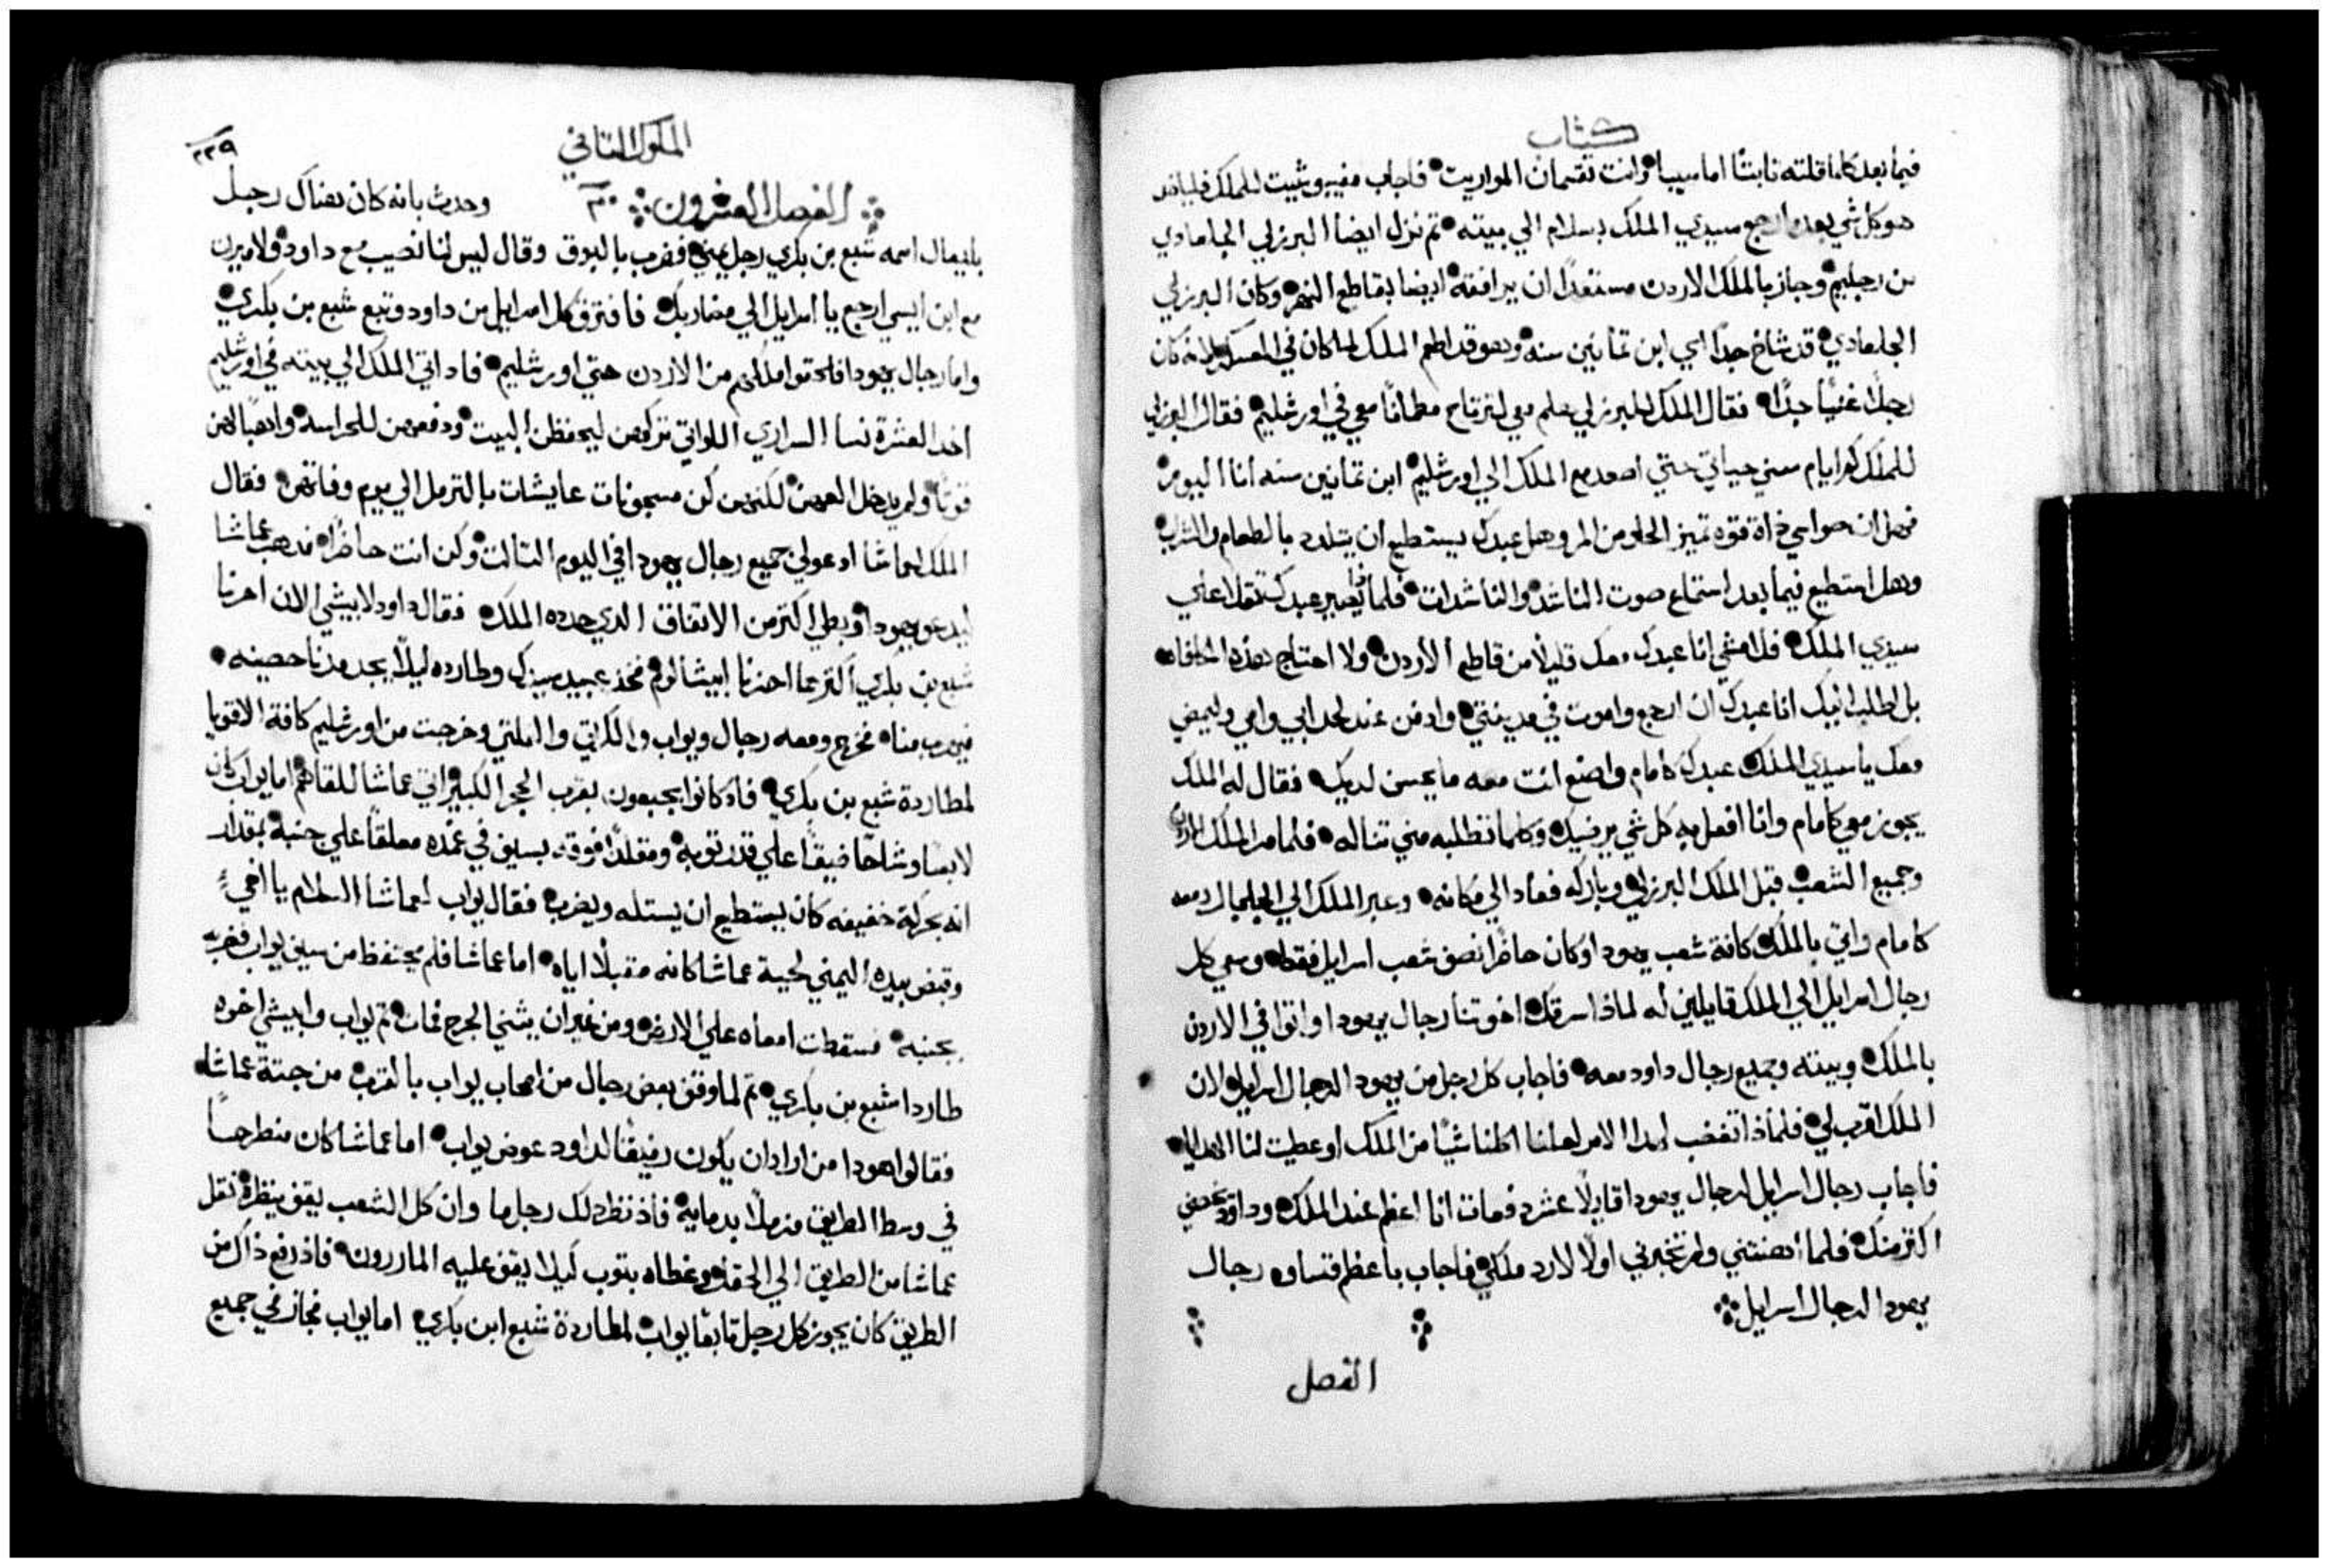 كتاب
فيما بعد كلما قلته ثابتًا اما سيبا وانت تقسمان المواريت فاجاب مفيبوشيت للملك فلياخد
هو كل شي بعد ارجع سيدي الملك بسلام الي بيته تم نزل ايضا البرزلي الجلعادي
من رجليم وجاز بالملك الاردن مستعدًا ان يرافقه ايضا بقاطع النهر وكان البرزلي
الجلعادي قد شاخ جدًا اي ابن تمانين سنه وهو قد اطعم الملك لما كان في المعسكر لانه كان
رجلًا غنيًا جدًا فقال الملك للبرزلي هلم معي لترتاح مطمانًا معي في اورشليم فقال البرزلي
للملك كم ايام سني حياتي حتي اصعد مع الملك الي اورشليم ابن تمانين سنه انا اليوم
فهل ان حواسي ذات قوه تميز الحلو من المر وهل عبدك يستطيع ان يتلدد بالطعام والشراب
وهل استطيع فيما بعد استماع صوت الناشد والناشدات فلماذا يصير عبدك تقلا علي
سيدي الملك فلامشي انا عبدك معك قليلًا من قاطع الأردن ولا احتاج هذه المكافاه
بل اطلب اليك انا عبدك ان ارجع واموت في مدينتي وادفن عند لحد ابي وامي وليمض
معك يا سيدي الملك عبدك كامام واصنع انت معه ما يحسن لديك فقال له الملك
يجوز معي كامام وانا افعل به كل شي يرضيك وكلما تطلبه مني تناله فلما مر الملك الاردن
وجميع الشعب قبل الملك البرزلي وباركه فعاد الي مكانه وعبر الملك الي الجلجال ومعه
كامام واتي بالملك كافة شعب يهودا وكان حاضرًا نصف شعب اسرايل فقط وسعي كل
رجال اسرايل الي الملك قايلين له لماذا سرقك اخوتنا رجال يهودا واتوا في الاردن
بالملك وبيته وجميع رجال داود معه فاجاب كل رجل من يهودا الرجال اسرايل لان
الملك اقرب لي فلماذا تغضب لهذا الامر لعلنا اكلنا شيًا من الملك او عطيت لنا الهدايا
فاجاب رجال اسرايل لرجال يهودا قايلًا عشرة فمات انا اعظم عند الملك وداود يخصني
اكتر منك فلما اهنتني ولم تخبرني اولًا لارد ملكي فاجاب باعظم قساوه رجال
يهودا لرجال اسرايل
الفصل
الملوك التاني
٢٢٩
الفصل العشرون ٢٠ وحدث بانه كان هناك رجل
بليعال اسمه شبع بن بكري رجل يميني فضرب بالبوق وقال ليس لنا نصيب مع داود ولا ميرات
مع ابن ايسي ارجع يا اسرايل الي مضاربك فافترق كل اسرايل من داود وتبع شبع بن بكري
واما رجال يهودا فالتحقوا ملكهم من الاردن حتي اورشليم فاد اتي الملك الي بيته في اورشليم
اخد العشرة نسا السراري اللواتي تركهن ليحفظن البيت ودفعهن للحراسه واهبًا لهن
قوتًا ولم يدخل اليهن لكنهن كن مسجونات عايشات بالترمل الي يوم وفاتهن فقال
الملك لعماشا ادعو لي جميع رجال يهودا في اليوم التالت وكن انت حاضرًا فدهب عماشا
ليدعو يهودا وبطي اكتر من الاتفاق الدي حدده الملك فقال داود لابيشي الان احزنا
شبع بن بكري اكتر مما احزنا ابيشالوم فخذ عبيد سيدك وطارده ليلًا يجد مدنا حصينه
فيهرب منا فخرج ومعه رجال ويواب والكراتي والفلتي وخرجت من اورشليم كافة الاقويا
لمطاردة شبع بن بكري فاد كانوا بجبعون بقرب الحجر الكبير اتي عماشا للقاهم اما يواب كان
لابسا وشاحًا ضيقًا علي قدر توبه ومقلدًا فوقه بسيف في غمده معلقًا علي جنبه بمقدار
انه بحركة خفيفه كان يستطيع ان يستله ويضرب فقال يواب لعماشا السلام يا اخي
وقبض بيده اليمني لحية عماشا كانه مقبلًا اياه اما عماشا فلم يحتفظ من سيف يواب فضربه
بجنبه فسقطت امعاه علي الارض ومن غير ان يثني الجرح فمات تم يواب وابيشي اخوه
طاردا شبع بن بكري تم لما وقف بعض رجال من اصحاب يواب بالقرب من جتة عماشا
فقالوا هودا من اراد ان يكون رفيقًا لداود عوض يواب اما عماشا كان منطرحًا
في وسط الطريق مزملًا بدمايه فاذ نظر دلك رجل ما وان كل الشعب يقف ينظره نقل
عماشا من الطريق الي الحقل وغطاه بتوب ليلا يقف عليه الماررون فاذ رفع ذاك من
الطريق كان يجوز كل رجل تابعًا يواب لمطاردة شبع ابن بكري اما يواب فجاز في جميع